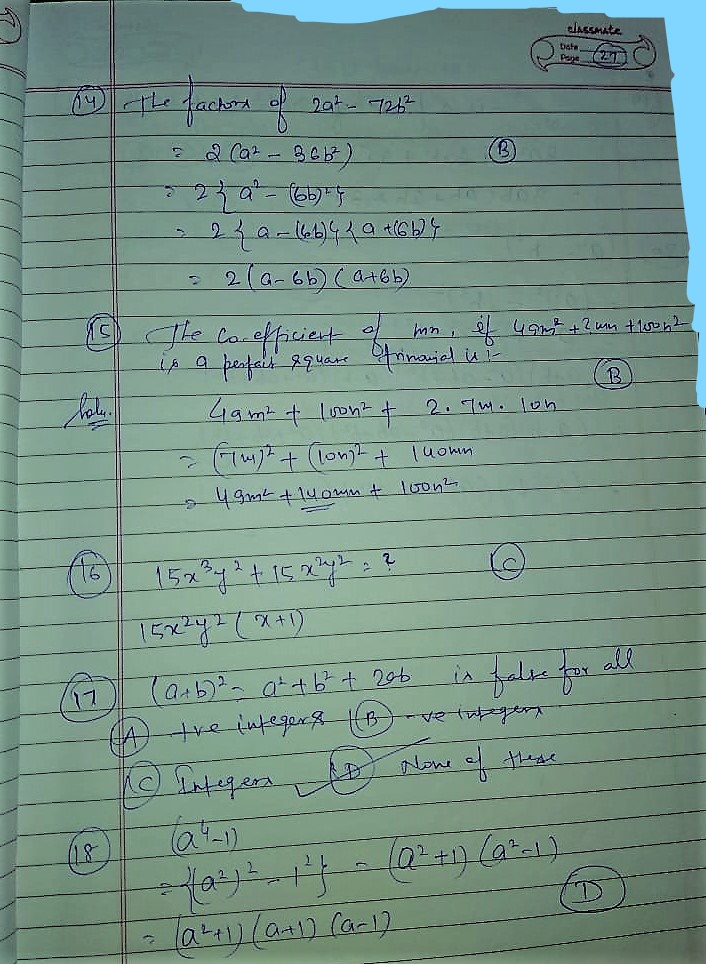 classmate
Date
Page 27
(14) The factors of 2a² - 72b²
= 2(a² - 36b²) (B)
= 2{a² - (6b)²}
= 2{a - (6b)}{a + (6b)}
= 2(a-6b)(a+6b)
(15) The co-efficient of mn, if 49m² + ?mn + 100n²
is a perfait square trinomial is :-
(B)
Soln. 49m² + 100n² + 2. 7m. 10n
= (7m)² + (10n)² + 140mn
= 49m² + 140mn + 100n²
(16) 15x³y² + 15x²y² = ? (C)
15x²y² (x+1)
(17) (a+b)² = a² + b² + 2ab is false for all
(A) +ve integers (B) -ve integers
(C) Integers (D) None of these
(18) (a⁴-1)
= {(a²)² - 1²} = (a²+1) (a²-1)
(D)
= (a²+1) (a+1) (a-1)